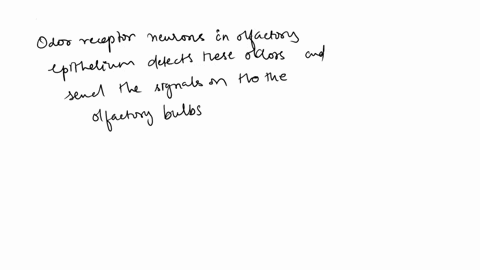 Odor receptor neurons in olfactory
epithelium detects these odors and
send the signals on tho the
olfactory bulbs